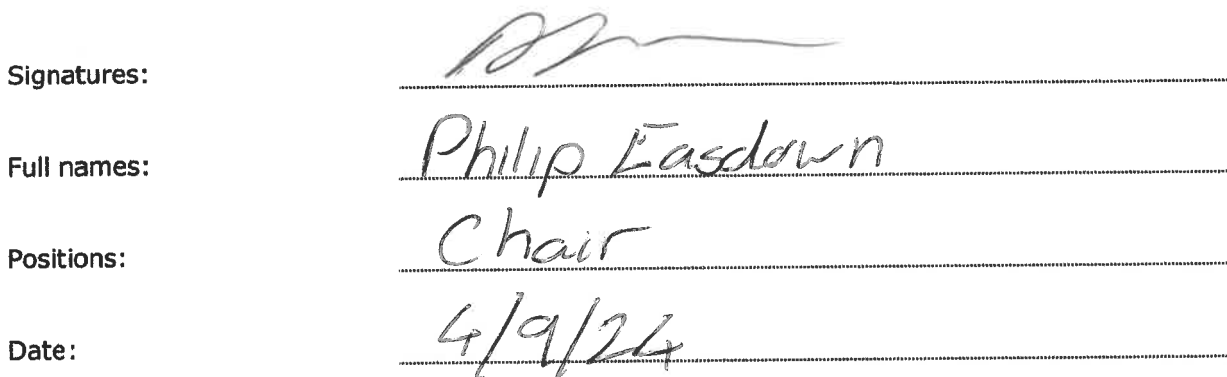 Signatures:
Full names: Philip Easdown
Positions: Chair
Date: 4/9/24